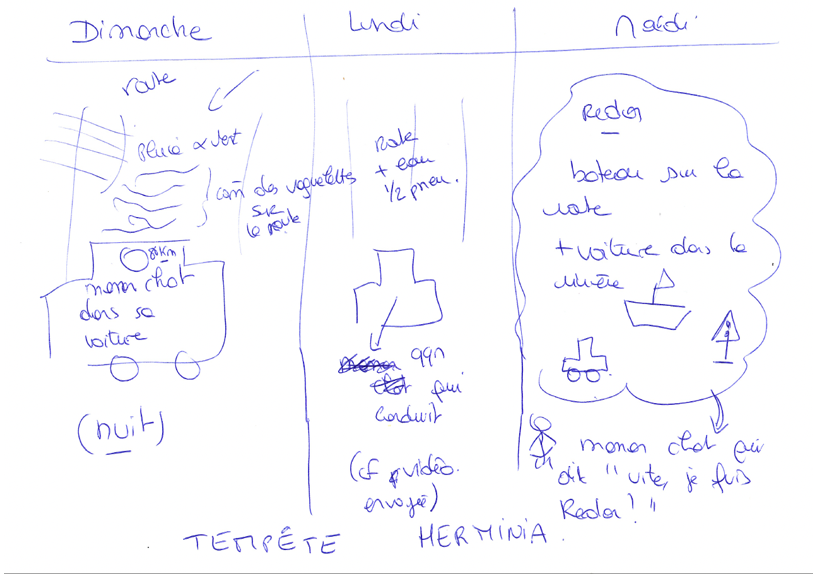 Dimanche
Lundi
Mardi
route
pluie & vent
com des vaguelettes
sur
la route
80km
maman chat
dans sa
voiture
(nuit)
route
+ eau
1/2 pneu.
qqn
qui
conduit
(cf vidéo
envoyée)
Redon
bateau sur la
route
+ voiture dans la
rivière
maman chat qui
dit "vite, je fuis
Redon!"
TEMPÊTE HERMINIA.